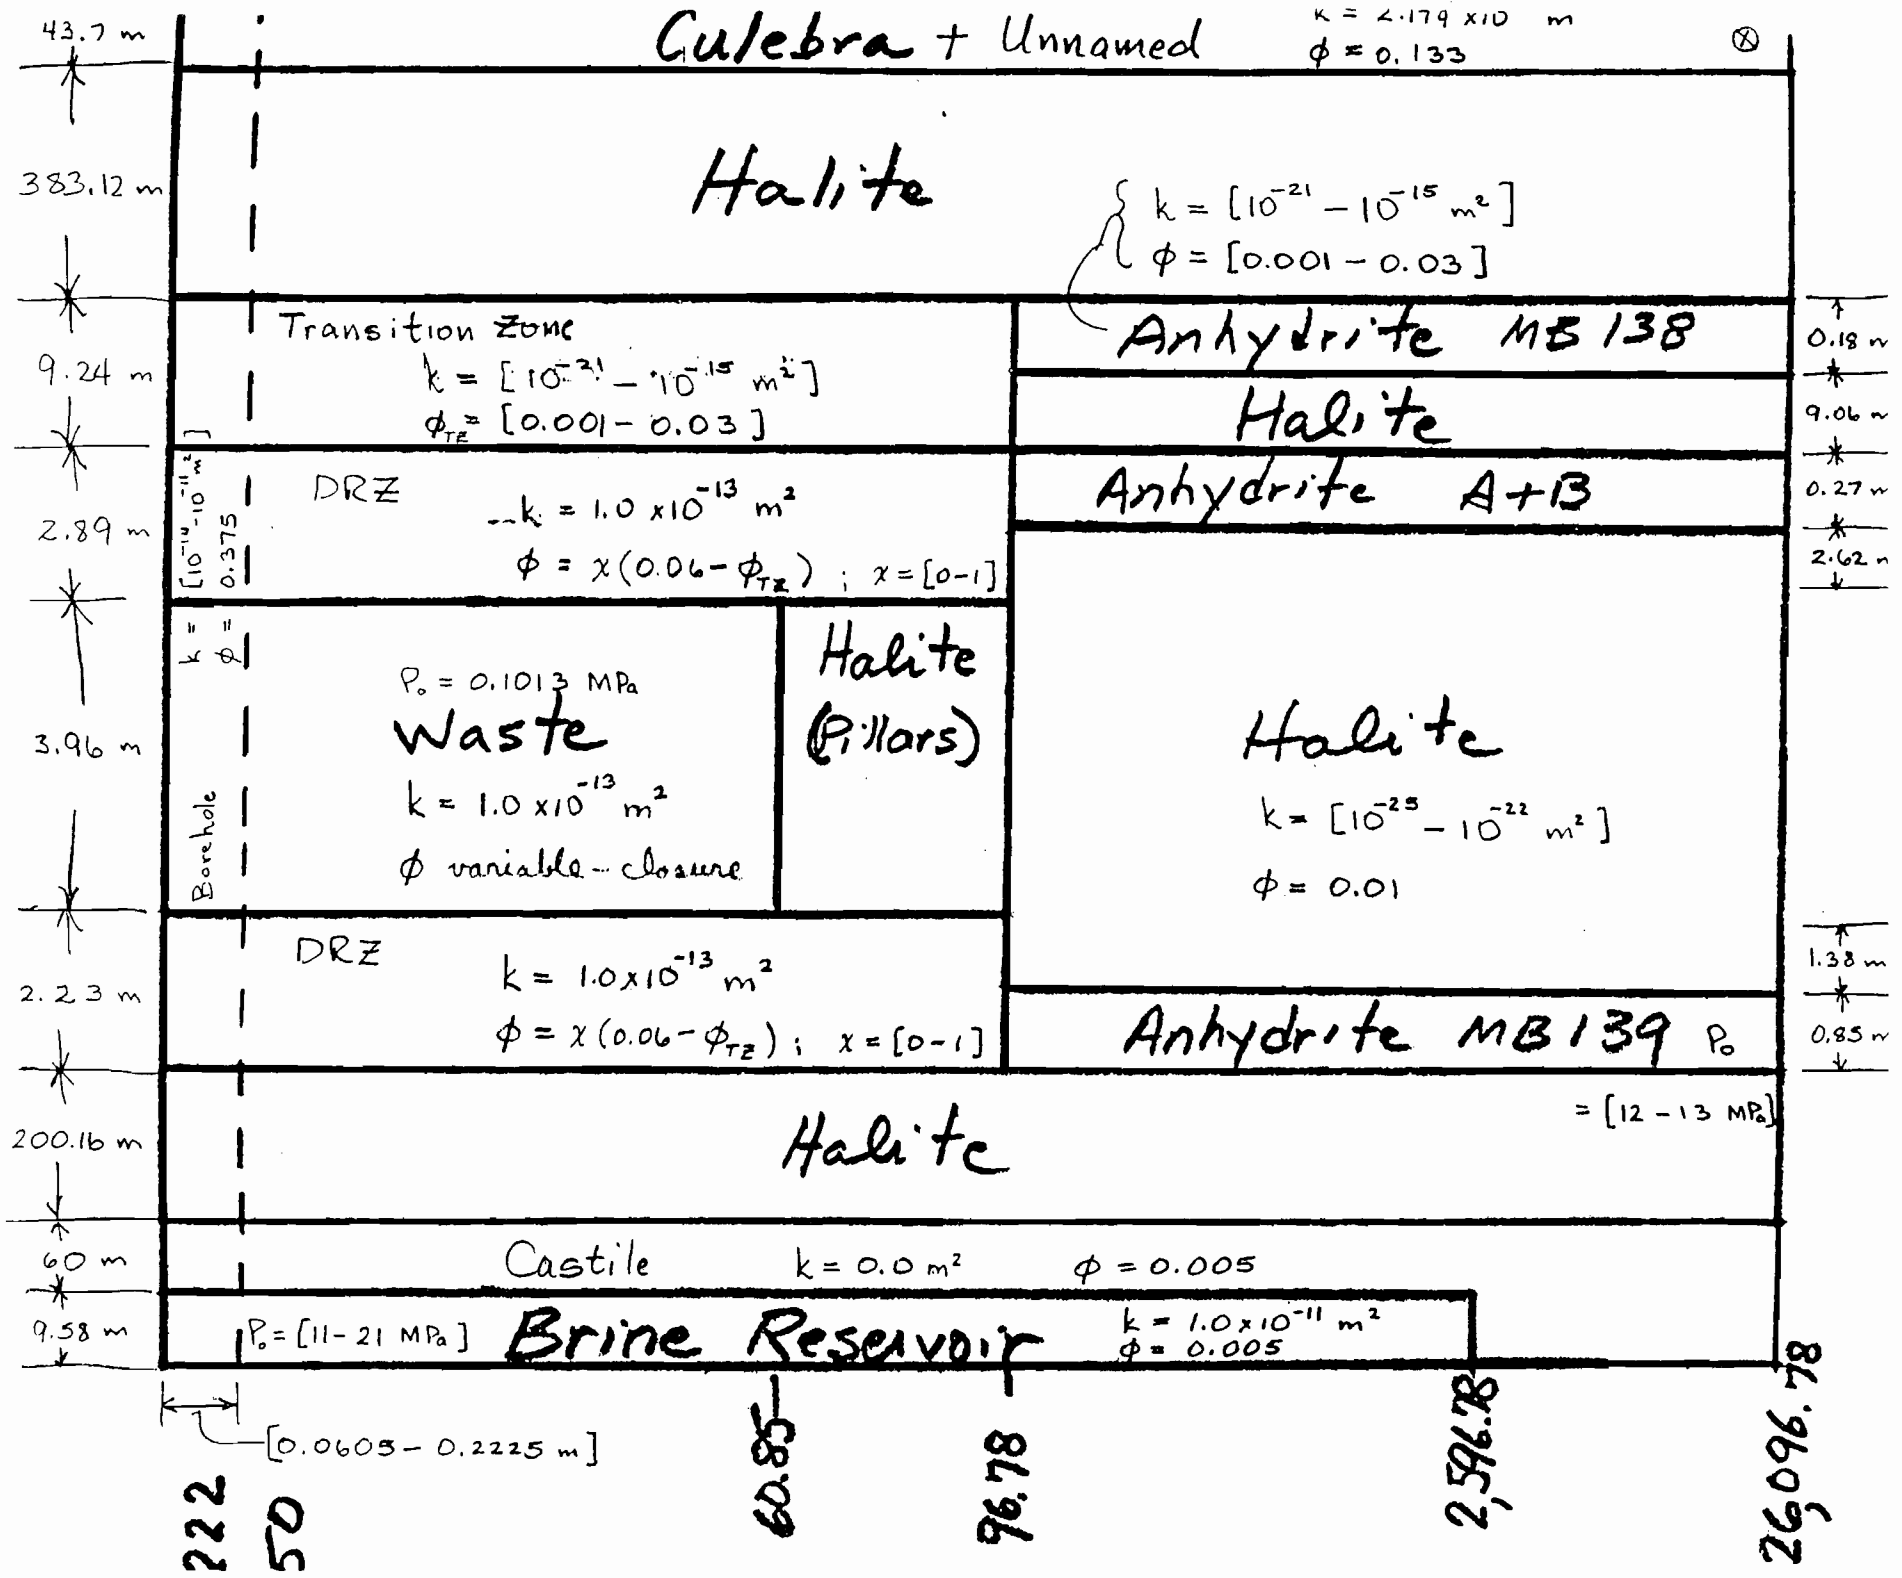 43.7 m
Culebra + Unnamed
k = 2.179 x10 m
φ = 0.133
⊗
383.12 m
Halite
k = [10⁻²¹ - 10⁻¹⁵ m²]
φ = [0.001 - 0.03]
9.24 m
Transition Zone
k = [10⁻²¹ - 10⁻¹⁵ m²]
φ_TZ = [0.001 - 0.03]
Anhydrite MB 138
0.18 m
Halite
9.06 m
2.89 m
DRZ
k = 1.0 x10⁻¹³ m²
φ = x(0.06 - φ_TZ) ; x = [0-1]
Anhydrite A+B
0.27 m
2.62 m
k = [10⁻¹⁴ - 10⁻¹¹ m²]
φ = 0.375
Borehole
3.96 m
P₀ = 0.1013 MPa
Waste
k = 1.0 x10⁻¹³ m²
φ variable - closure
Halite
(Pillars)
Halite
k = [10⁻²⁵ - 10⁻²² m²]
φ = 0.01
2.23 m
DRZ
k = 1.0x10⁻¹³ m²
φ = x(0.06 - φ_TZ) ; x = [0-1]
1.38 m
Anhydrite MB 139 P₀
0.85 m
= [12 - 13 MPa]
200.16 m
Halite
60 m
Castile k = 0.0 m² φ = 0.005
9.58 m
P₀ = [11 - 21 MPa] Brine Reservoir
k = 1.0x10⁻¹¹ m²
φ = 0.005
[0.0605 - 0.2225 m]
222
50
60.85
96.78
2,596.78
26,096.78